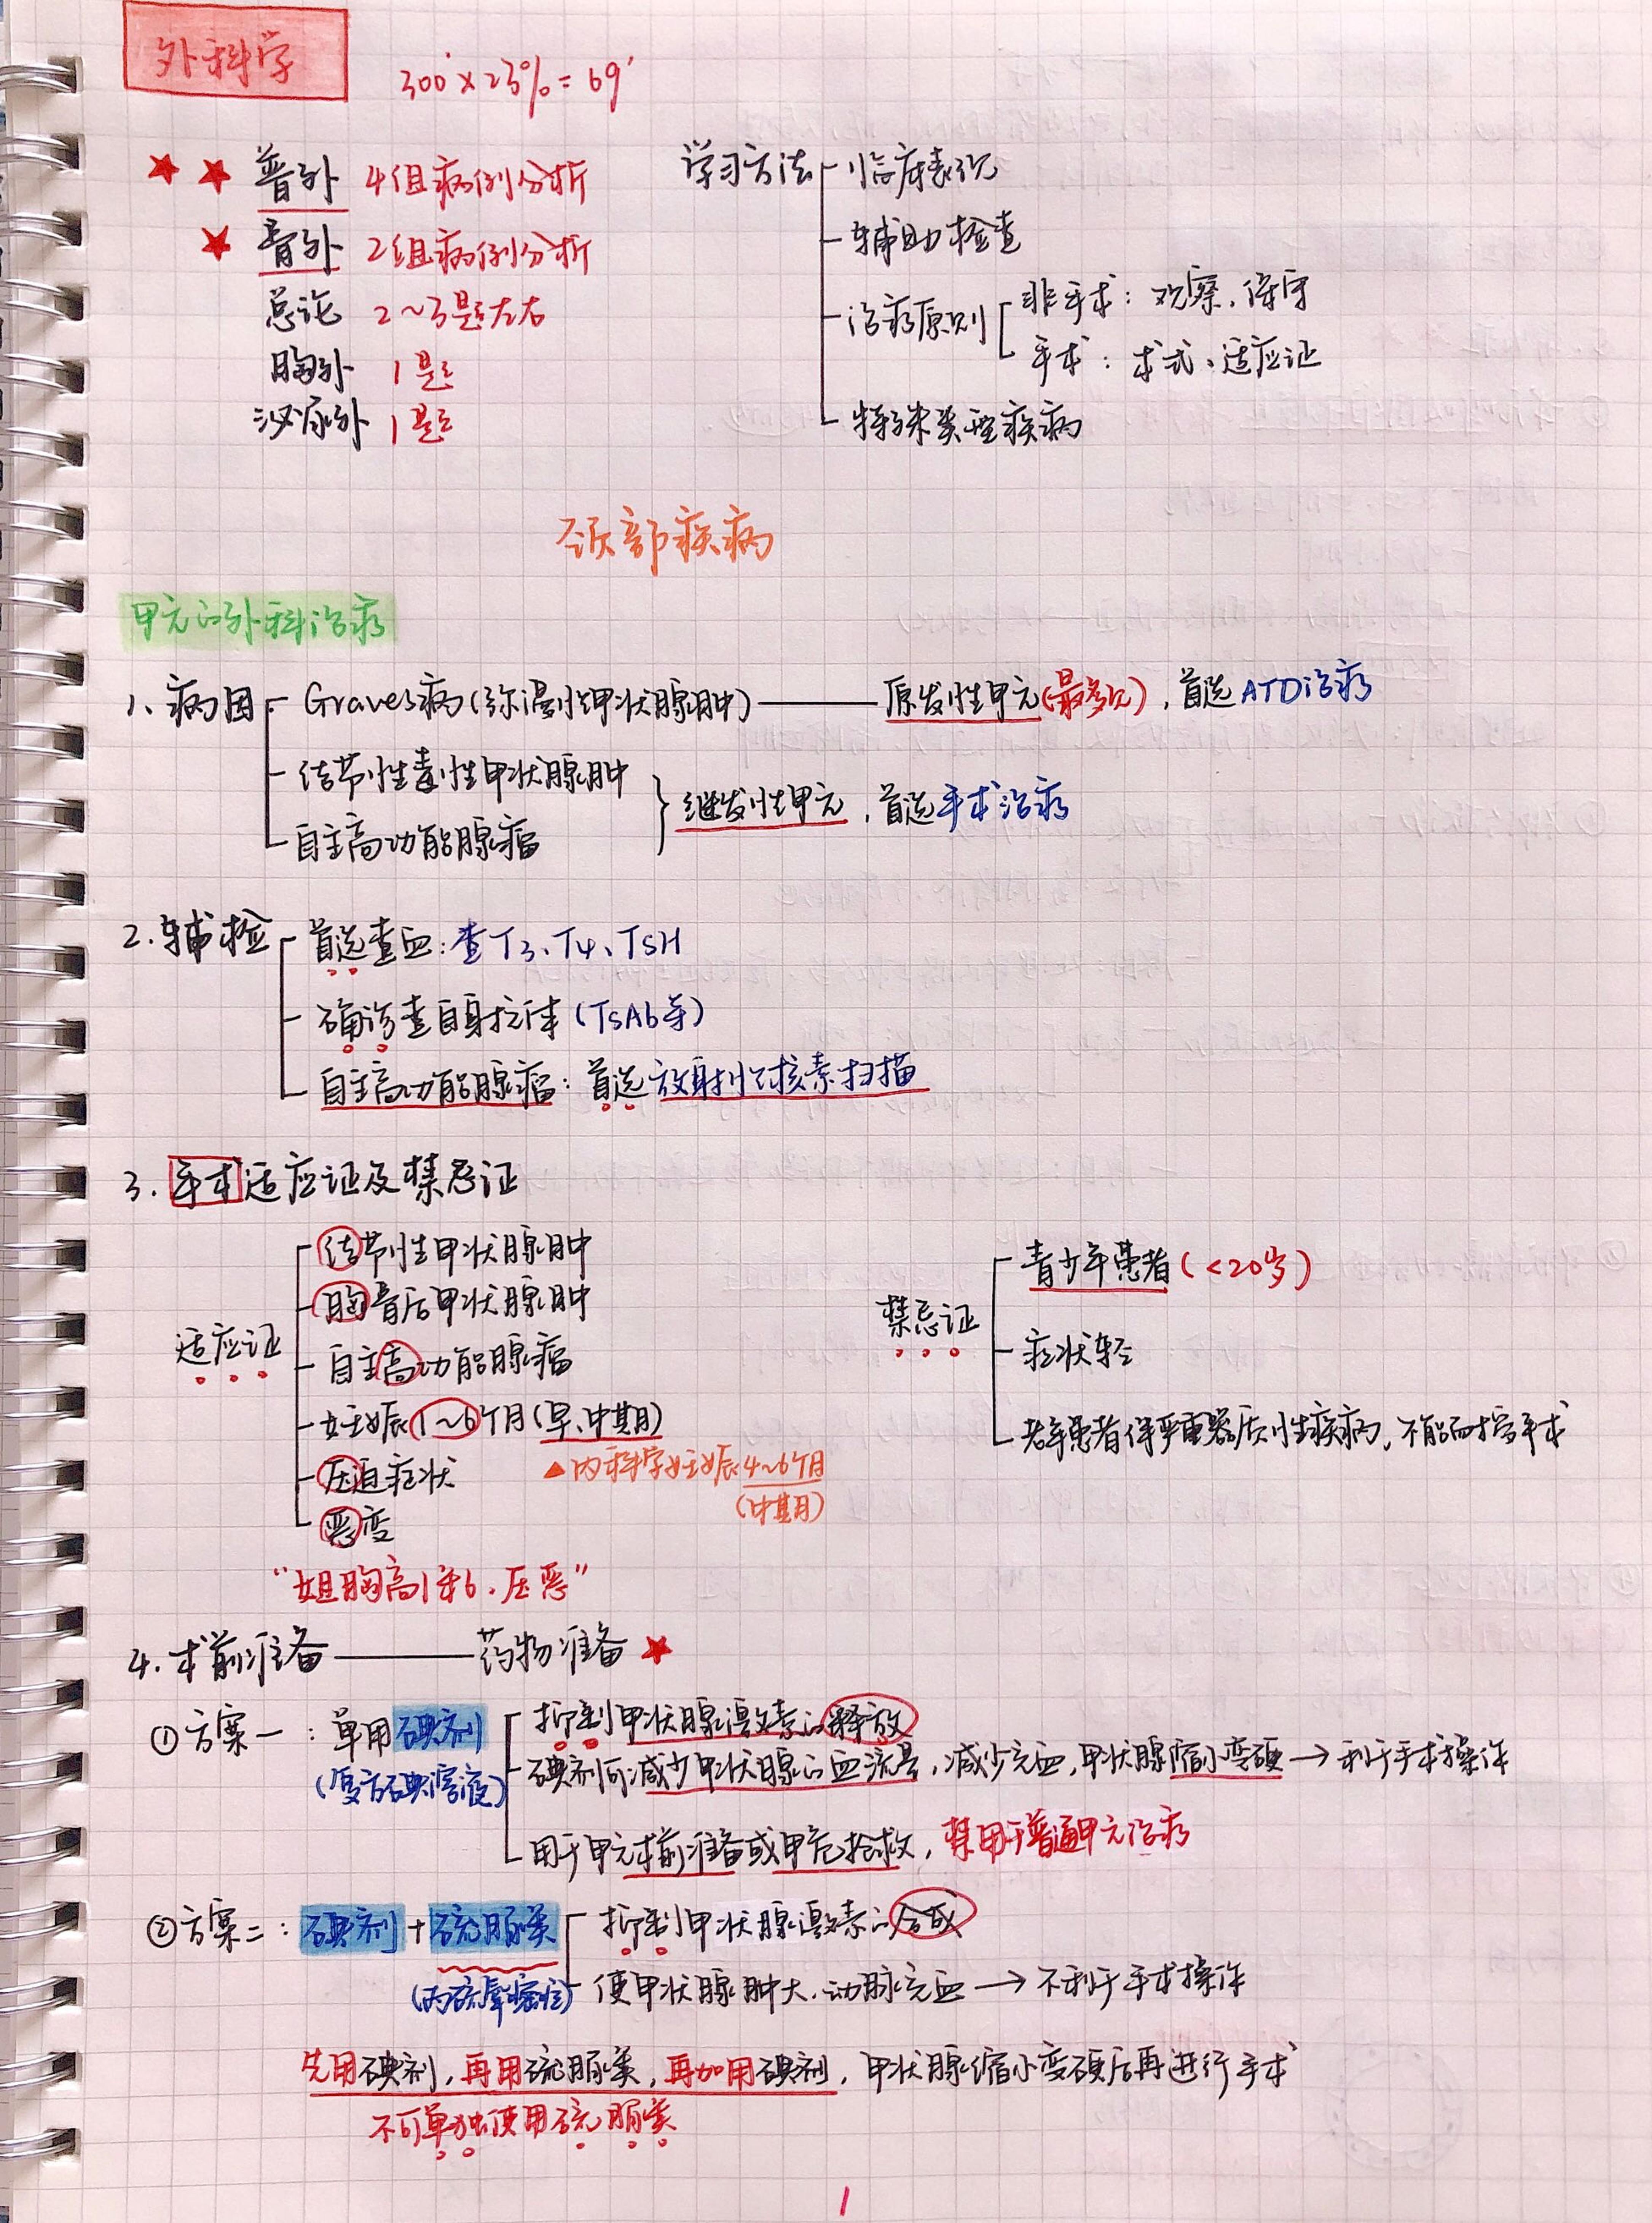 外科学
300' × 23% = 69'
★ ★ 普外 4组病例分析
★ 骨外 2组病例分析
总论 2~3题左右
胸外 1题
泌尿外 1题
学习方法
临床表现
辅助检查
治疗原则
非手术：观察、保守
手术：术式、适应证
特殊类型疾病
颈部疾病
甲亢的外科治疗
1、病因
Graves病(弥漫性甲状腺肿)——原发性甲亢(最多见)，首选ATD治疗
结节性毒性甲状腺肿
自主高功能腺瘤
继发性甲亢，首选手术治疗
2.辅检
首选查血：查T3、T4、TSH
确诊查自身抗体(TsAb等)
自主高功能腺瘤：首选放射性核素扫描
3.手术适应证及禁忌证
适应证
结节性甲状腺肿
胸骨后甲状腺肿
自主高功能腺瘤
妊娠1~6个月(早、中期)
压迫症状
▲内科学妊娠4~6个月
(中期)
恶变
"姐胸高1米6.压恶"
禁忌证
青少年患者(<20岁)
症状轻
老年患者伴严重器质性疾病，不能耐受手术
4.术前准备——药物准备★
①方案一：单用碘剂
(复方碘溶液)
抑制甲状腺激素的释放
碘剂可减少甲状腺的血流量，减少充血，甲状腺缩小变硬→利于手术操作
用于甲亢术前准备或甲危抢救，禁用于普通甲亢治疗
②方案二：碘剂+硫脲类
(丙硫氧嘧啶)
抑制甲状腺激素的合成
使甲状腺肿大、动脉充血→不利于手术操作
先用碘剂，再用硫脲类，再加用碘剂，甲状腺缩小变硬后再进行手术
不可单独使用硫脲类
1